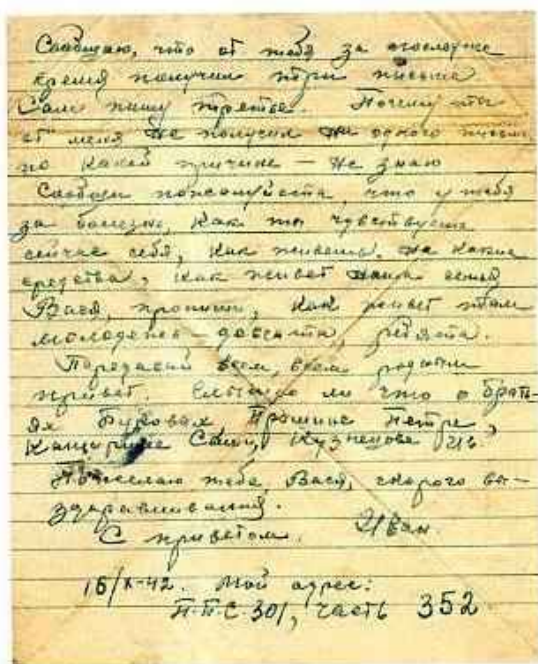 Сообщаю, что от тебя за последнее
время получил три письма.
Сам пишу третье. Почему ты
от меня не получил ни одного письма
по какой причине — не знаю
Сообщи пожалуйста, что у тебя
за болезнь, как ты чувствуешь
сейчас себя, как живешь, на какие
средства, как живет наша семья
Вася, пропиши, как живет там
молодежь девчата, ребята.
Передавай всем, всем родным
привет. Слыхало ли что о брать-
ях Буковых, Прошине Петре,
Саши, Кузнецове Ив.
Пожелаю тебе, Вася, скорого вы-
здоравливания.
С приветом. Иван.
16/X-42. Мой адрес:
П.П.С. 301, часть 352